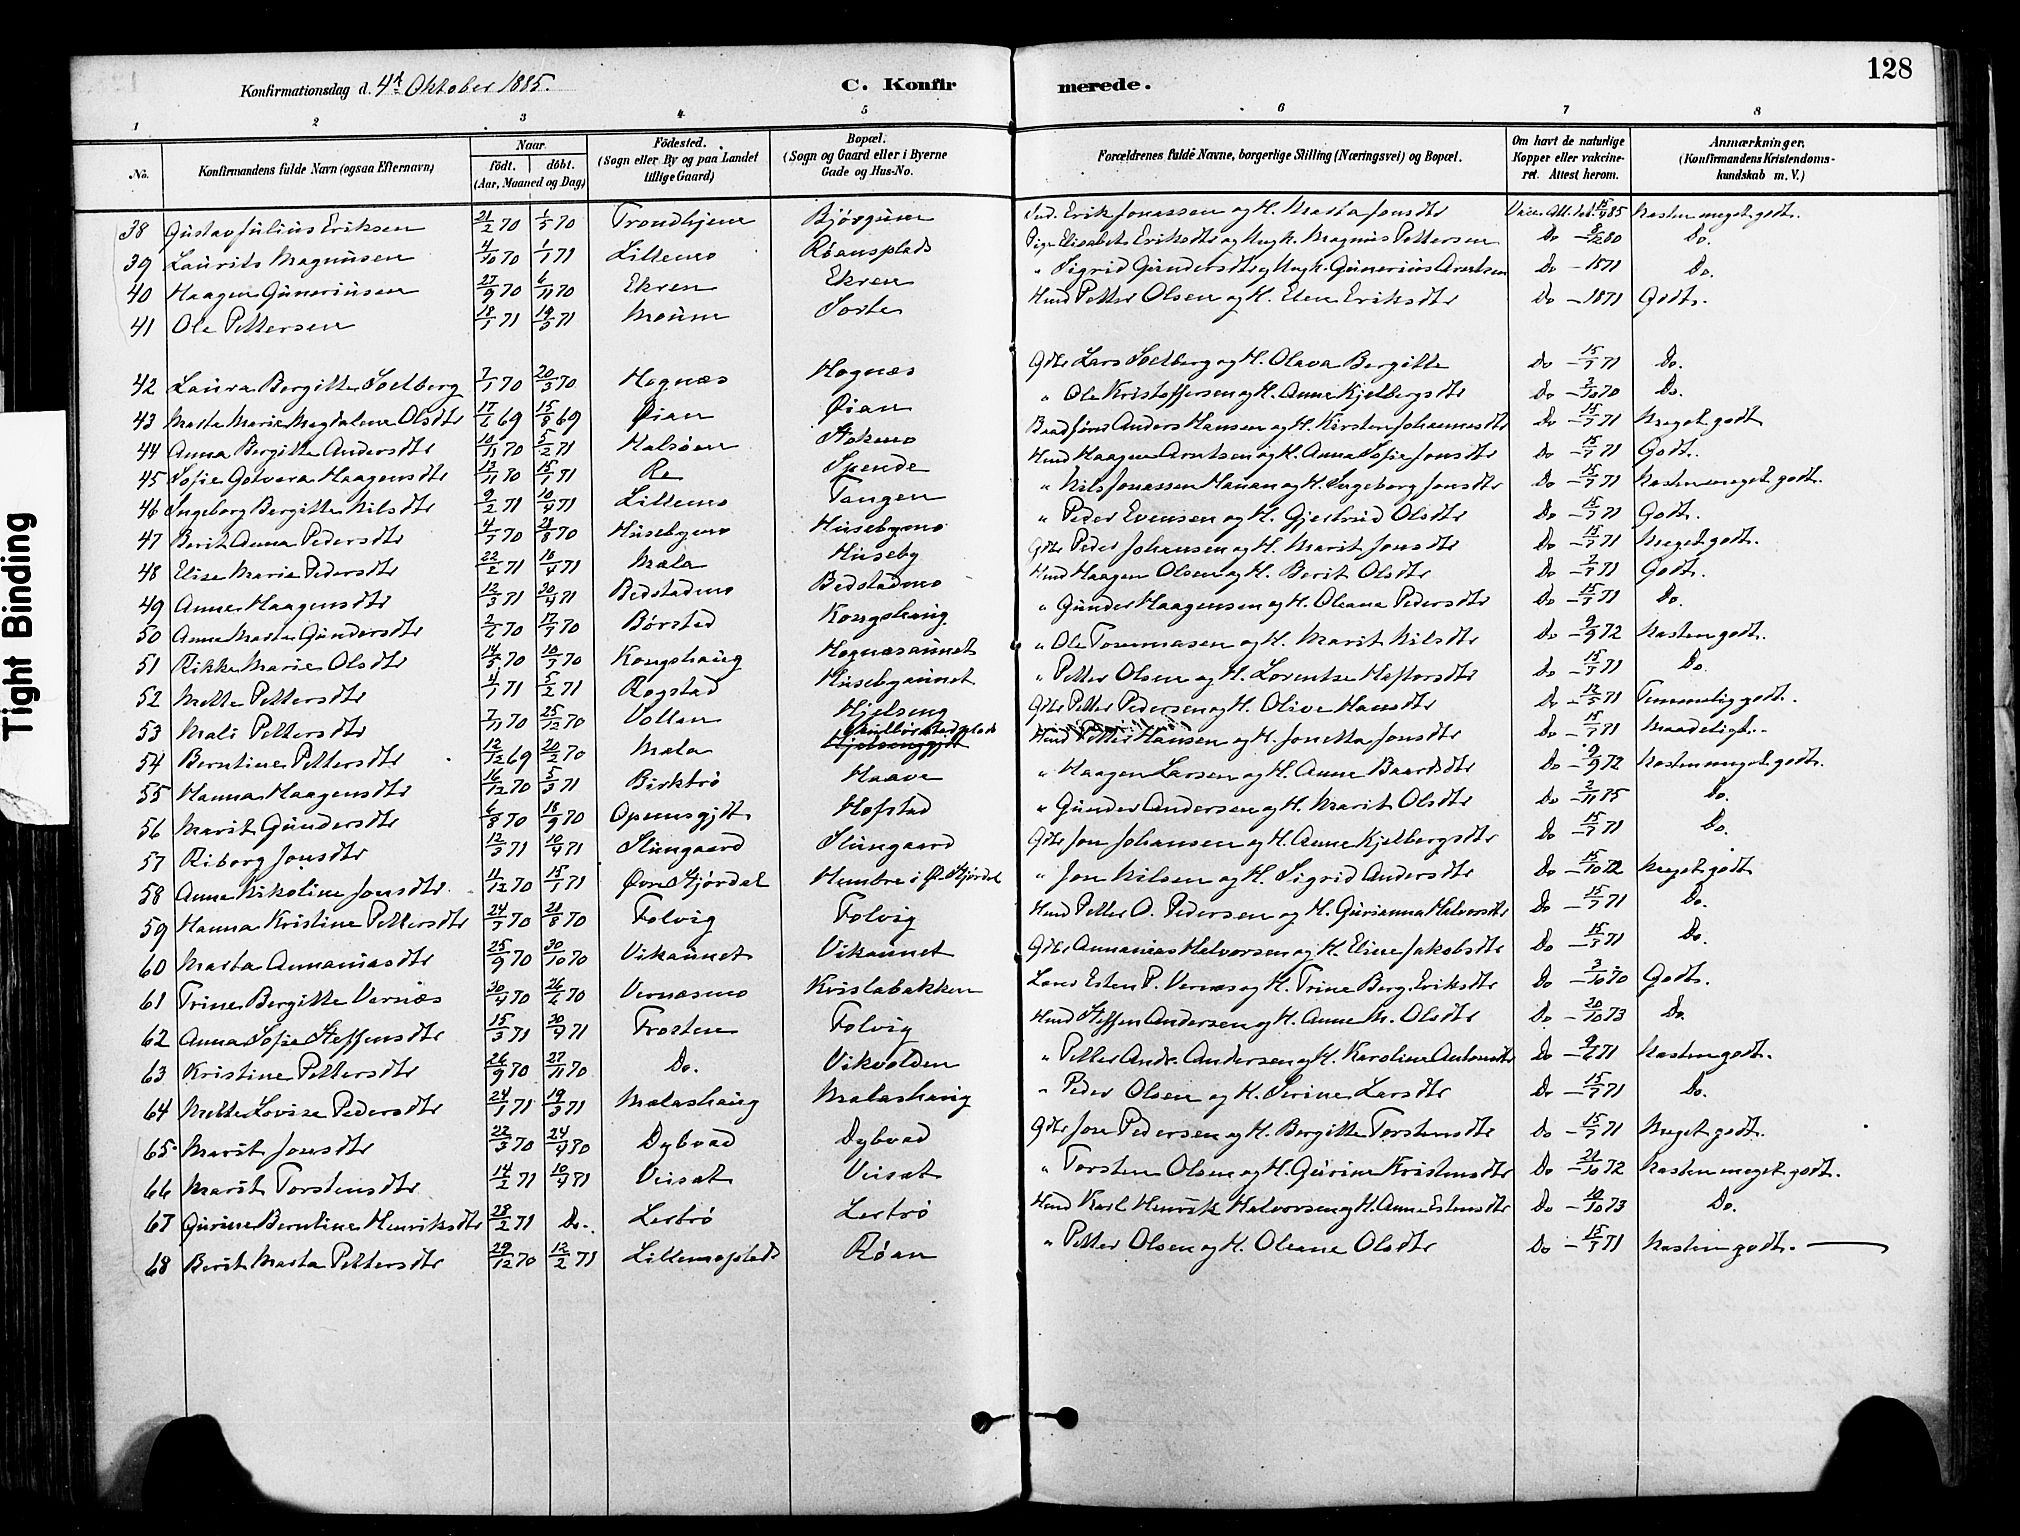 128
Konfirmationsdag d. 4de Oktober 1885.
C. Konfirmerede.
1 2 3 4 5 6 7 8
No. Konfirmandens fulde Navn (ogsaa Efternavn) Naar født. døbt. (Aar, Maaned og Dag) Födested. (Sogn eller By og paa Landet tillige Gaard) Bopæl. (Sogn og Gaard eller i Byerne Gade og Hus-No. Forældrenes fulde Navne, borgerlige Stilling (Næringsvei) og Bopæl. Om havt de naturlige Kopper eller vakcineret. Attest herom. Anmærkninger. (Konfirmandens Kristendomskundskab m. V.)
38 Gustav Julius Eriksen 21/2 70 1/5 70 Trondhjem Bjørgum Ind. Erik Jonassen og H. Marta Jonsdtr Vacc. Att. dat. 15/9 85 Næsten meget godt.
39 Laurits Magnusen 4/10 70 1/1 71 Lillemo Røansplads Pige Elisabeth Eriksdtr og Ungk. Magnus Pettersen Do Do.
40 Haagen Guneriusen 27/9 70 6/11 70 Ekren Ekren " Sigrid Gundersdtr og Ungk. Gunerius Arntsen Do - 1871 Do.
41 Ole Pettersen 18/1 71 19/3 71 Moum Sorte Husm Petter Olsen og H. Elen Eriksdtr Do - 1871 Godt.
42 Laura Bergitte Soelberg 7/1 70 20/3 70 Hognæs Hognæs Gdbr Lars Soelberg og H. Olava Bergitte Do - 15/7 71 Do.
43 Marta Marie Magdalena Olsdtr 17/6 69 15/8 69 Øian Øian " Ole Kristoffersen og H. Anne Kjelbergsdtr Do - 2/10 70 Do.
44 Anna Bergitte Andersdtr 10/11 70 5/2 71 Halsøen Stokmo Anders Hansen og H. Kirsten Johannesdtr Do - 15/7 71 Meget godt
45 Sofie Gotvara Haagensdtr 13/11 70 15/1 71 Re Spende Husm Haagen Arntsen og H. Anna Sofie Jonsdtr Do - 15/7 71 Godt.
46 Ingeborg Bergitte Nilsdtr 9/2 71 10/4 71 Lillemo Tangen " Nils Jonassen Hanan og H. Ingeborg Jonsdtr Do - 15/7 71 Næsten meget godt.
47 Berit Anna Pedersdtr 4/7 70 28/8 70 Husebymo Husebymo " Peder Evensen og H. Gjertrud Olsdtr Do - 15/7 71 Godt.
48 Elise Marie Pedersdtr 22/2 71 10/4 71 Mæla Huseby Gdbr Peder Johansen og H. Marit Jonsdtr Do - 15/7 71 Meget godt.
49 Anne Haagensdtr 12/3 71 30/4 71 Bedstadmo Bedstadmo Husm Haagen Olsen og H. Berit Olsdtr Do - 2/7 71 Godt.
50 Anne Marta Gundersdtr 2/6 70 17/7 70 Børstad Kongshaug " Gunder Haagensen og H. Oleana Pedersdtr Do - 15/7 71 Do.
51 Rikke Marie Olsdtr 14/5 70 10/7 70 Kongshaug Hognæsaunet " Ole Tommasen og H. Marit Nilsdtr Do - 9/9 72 Næsten godt.
52 Mette Pettersdtr 4/1 71 5/2 71 Rogstad Husebyaunet " Petter Olsen og H. Lorentse Heftorsdtr Do - 15/7 71 Do.
53 Mali Pettersdtr 7/11 70 25/12 70 Vollan Hjelseng Gdbr Petter Pedersen og H. Olive Hansdtr Do - 12/5 71 Temmelig godt.
54 Berntine Pettersdtr 12/12 69 20/2 70 Mæla Husm Petter Hansen og H. Jonetta Jonsdtr Do - 15/7 71 Maadeligt.
55 Hanna Haagensdtr 16/12 70 5/3 71 Birktrø Haave " Haagen Larsen og H. Anne Baardsdtr Do - 9/9 72 Næsten meget godt.
56 Marit Gundersdtr 6/8 70 18/9 70 Opemsgjdt Hofstad " Gunder Andersen og H. Marit Olsdtr Do - 2/11 75 Do.
57 Riborg Jonsdtr 12/3 71 10/4 71 Stungaard Stungaard Gdbr Jon Johansen og H. Anne Kjelbergsdtr Do - 15/7 71 Do.
58 Anne Nikoline Jonsdtr 11/12 70 15/1 71 Øvre Stjørdal Hembre i Ø. Stjørdal " Jon Nilsen og H. Sigrid Andersdtr Do - 15/10 72 Meget godt
59 Hanna Kristine Pettersdtr 24/7 70 28/8 70 Folvig Folvig Husm Petter O. Pedersen og H. Gurianna Halvorsdtr Do - 15/7 71 Do.
60 Marta Annaniasdtr 25/9 70 30/10 70 Vikaunet Vikaunet Gdbr Annanias Halvorsen og H. Eline Jakobsdtr Do - 15/7 71 Do.
61 Trine Bergitte Vernæs 30/4 70 26/6 70 Vernæsmo Krislabakken Esten P. Vernæs og H. Trine Berg. Eriksdtr Do - 3/10 70 Godt.
62 Anna Sofie Steffensdtr 15/3 71 30/4 71 Frosten Folvig Husm Steffen Andersen og H. Anne M. Olsdtr Do - 20/10 73 Do.
63 Kristine Pettersdtr 26/9 70 27/11 70 Do. Vikvolden " Petter Andr. Andersen og H. Karoline Antonsdtr Do - 9/6 71 Næsten godt.
64 Mette Lovise Pedersdtr 24/1 71 19/3 71 Mælashaug Mælashaug " Peder Olsen og H. Serine Larsdtr Do - 15/7 71 Do.
65 Marit Jonsdtr 22/3 70 24/4 70 Dybvad Dybvad Gdbr Jon Pedersen og H. Bergitte Torstensdtr Do - 15/7 71 Meget godt.
66 Marit Torstensdtr 14/2 71 10/4 71 Veisat Veisat " Torsten Olsen og H. Gurine Kristensdtr Do - 21/10 72 Næsten meget godt.
67 Gurine Berntine Henriksdtr 28/2 71 Do. Lertrø Lertrø Husm Karl Henrik Halvorsen og H. Anne Estensdtr Do - 10/10 73 Do.
68 Berit Marta Pettersdtr 29/12 70 12/2 71 Lillemoplads Røan " Petter Olsen og H. Oleane Olsdtr Do - 15/7 71 Næsten godt.
Tight Binding